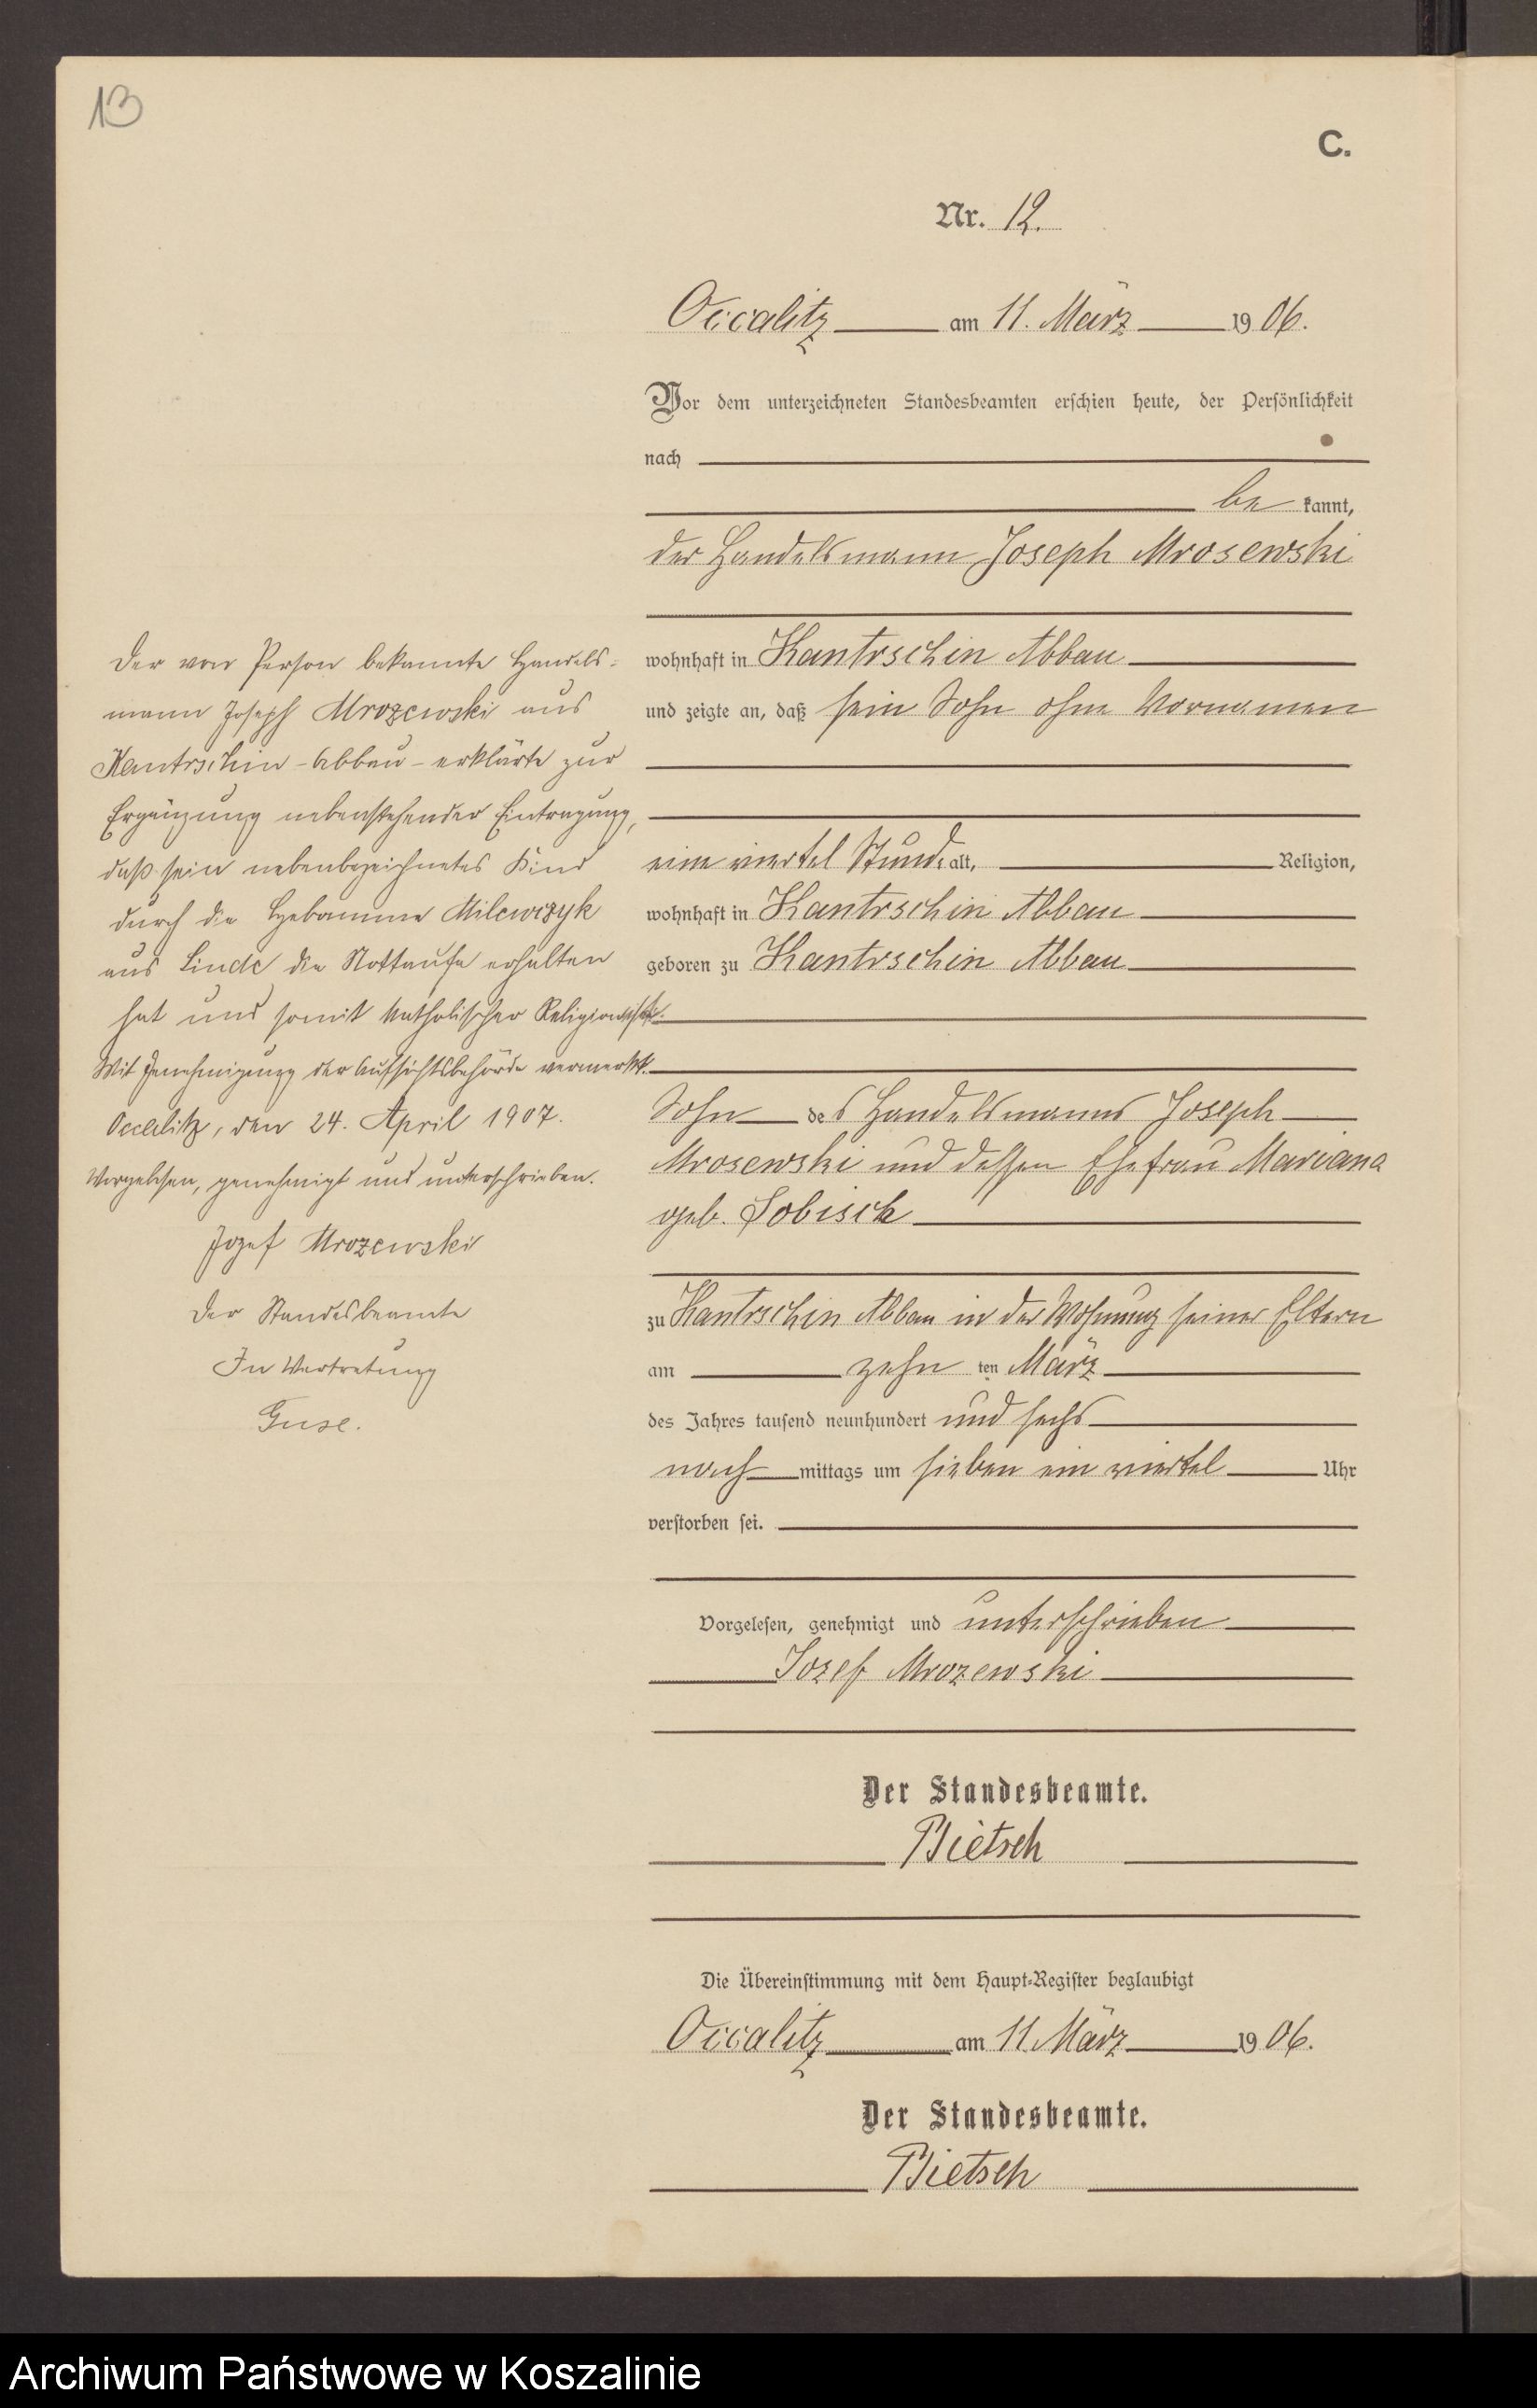 13
C.
Nr. 12.
Occalitz am 11. März 1906.
Vor dem unterzeichneten Standesbeamten erschien heute, der Persönlichkeit
nach
be kannt,
der Handelsmann Joseph Mrosewski
wohnhaft in Kantrschin Abbau
und zeigte an, daß sein Sohn ohne Vornamen
eine viertel Stunde alt, Religion,
wohnhaft in Kantrschin Abbau
geboren zu Kantrschin Abbau
Sohn des Handelsmanns Joseph
Mrosewski und dessen Ehefrau Mariana
geb. Sobisch
zu Kantrschin Abbau in der Wohnung seiner Eltern
am zehn ten März
des Jahres tausend neunhundert und sechs
nach mittags um sieben ein viertel Uhr
verstorben sei.
Vorgelesen, genehmigt und unterschrieben
Josef Mrozewski
Der Standesbeamte.
Bietsch
Die Übereinstimmung mit dem Haupt-Register beglaubigt
Occalitz am 11. März 1906.
Der Standesbeamte.
Bietsch
Der von Person bekannte Handels-
mann Joseph Mrozewski aus
Kantrschin-Abbau-erklärte zur
Ergänzung nebenstehender Eintragung,
daß sein nebenbezeichnetes Kind
durch die Hebamme Milewczyk
aus Linde die Nottaufe erhalten
hat und somit katholischer Religion ist.
Mit Genehmigung der Aufsichtsbehörde vermerkt.
Occalitz, den 24. April 1907.
Vorgelesen, genehmigt und unterschrieben.
Jozef Mrozewski
Der Standesbeamte
In Vertretung
Guse.
Archiwum Państwowe w Koszalinie